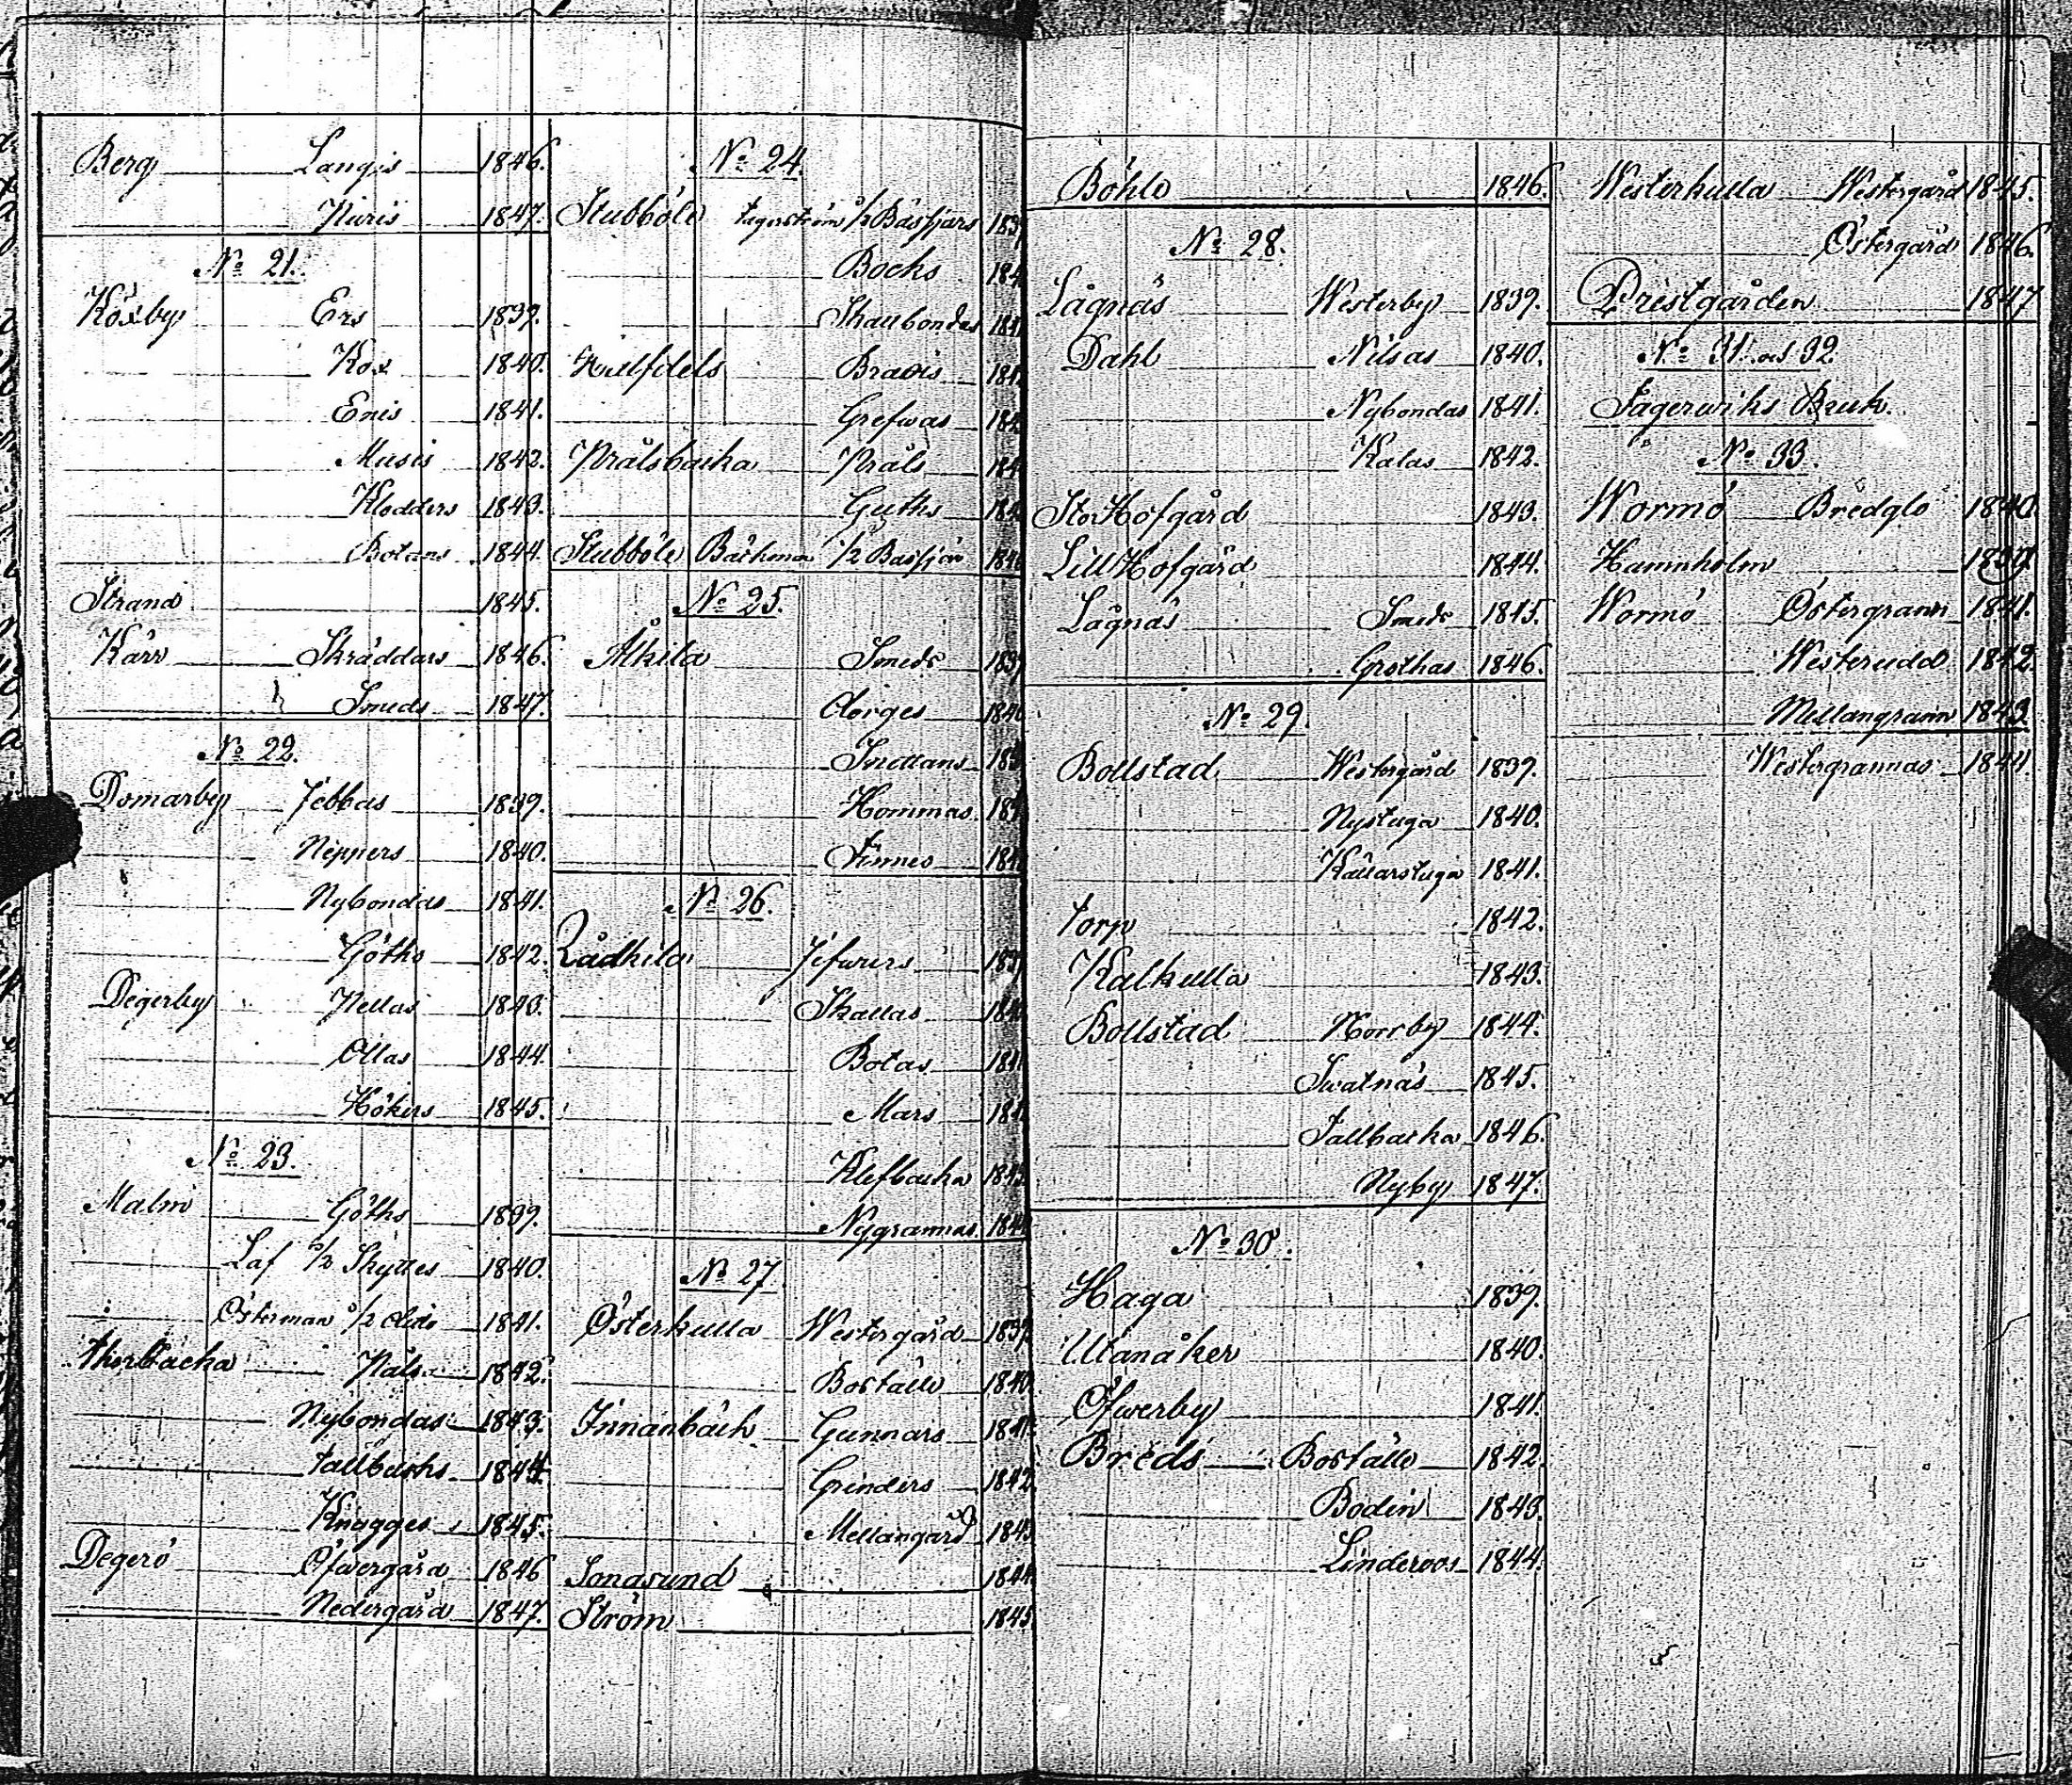 Berg Langis 1846.
Nuris 1847.
No 21.
Köxby Ers 1839.
Kox 1840.
Enis 1841.
Musis 1842.
Klodders 1843.
Botans 1844.
Strand 1845.
Kärr Skräddars 1846.
Smeds 1847.
No 22.
Domarby Jebbas 1839.
Neppers 1840.
Nybondas 1841.
Göths 1842.
Degerby Nellas 1843.
Ollas 1844.
Hökers 1845.
No 23.
Malm Göths 1839.
Laf 1/2 Skyttes 1840.
Österman 1/2 dido 1841.
Thorbacka Påls 1842.
Nybondas 1843.
Tallbacks 1844
Knagges 1845.
Degerö Öfvergård 1846
Nedergård 1847.
No 24.
Stubböle Fagerström 1/2 Båsfjärs
Bocks
Skaubondas
Bravis
Grefvas
Prålsbacka Pråls
Guths
Stubböle Bäckman 1/2 Basfjär
No 25.
Åkila Smeds
Görges
Smedans
Hommas
Finnes
No 26.
Rådkila Jifvers
Skallas
Botas
Mars
Klefbacka 1843
Nygrannas 1844
No 27.
Österkulla Westergård 1839
Boställe 1840
Innanbäck Gunnars 1841
Grinders 1842
Mellangård 1843
Sonasund 1844
Ström 1845
Böhle 1846.
No 28.
Lågnäs Westerby 1839.
Dahl Nilsas 1840.
Nybondas 1841.
Kalas 1842.
Stor Hofgård 1843.
Lill Hofgård 1844.
Lågnäs Smeds 1845.
Grothas 1846.
No 29.
Bollstad Westergård 1839.
Nystuga 1840.
Källarstuga 1841.
Torp 1842.
Kalkulla 1843.
Bollstad Norrby 1844.
Swatnäs 1845.
Tallbacka 1846.
Nyby 1847.
No 30.
Haga 1839.
Utanåker 1840.
Öfverby 1841.
Breds Boställe 1842.
Bodin 1843.
Linderoos 1844.
Westerkulla Westergård 1845.
Östergård 1846.
Prestgården 1847
No 31. och 32.
Fagerwiks Bruk.
No 33.
Wormö Bredglo 1840.
Hamnholm 1839.
Wormö Östergrann 1841.
Westerudd 1842.
Mellangrann 1843
Westergrannas 1844.